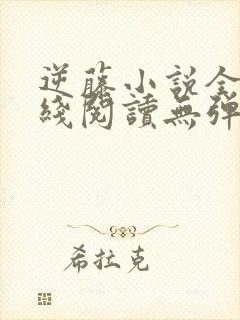 逆藤小说全
綫閱讀無彈
希拉克